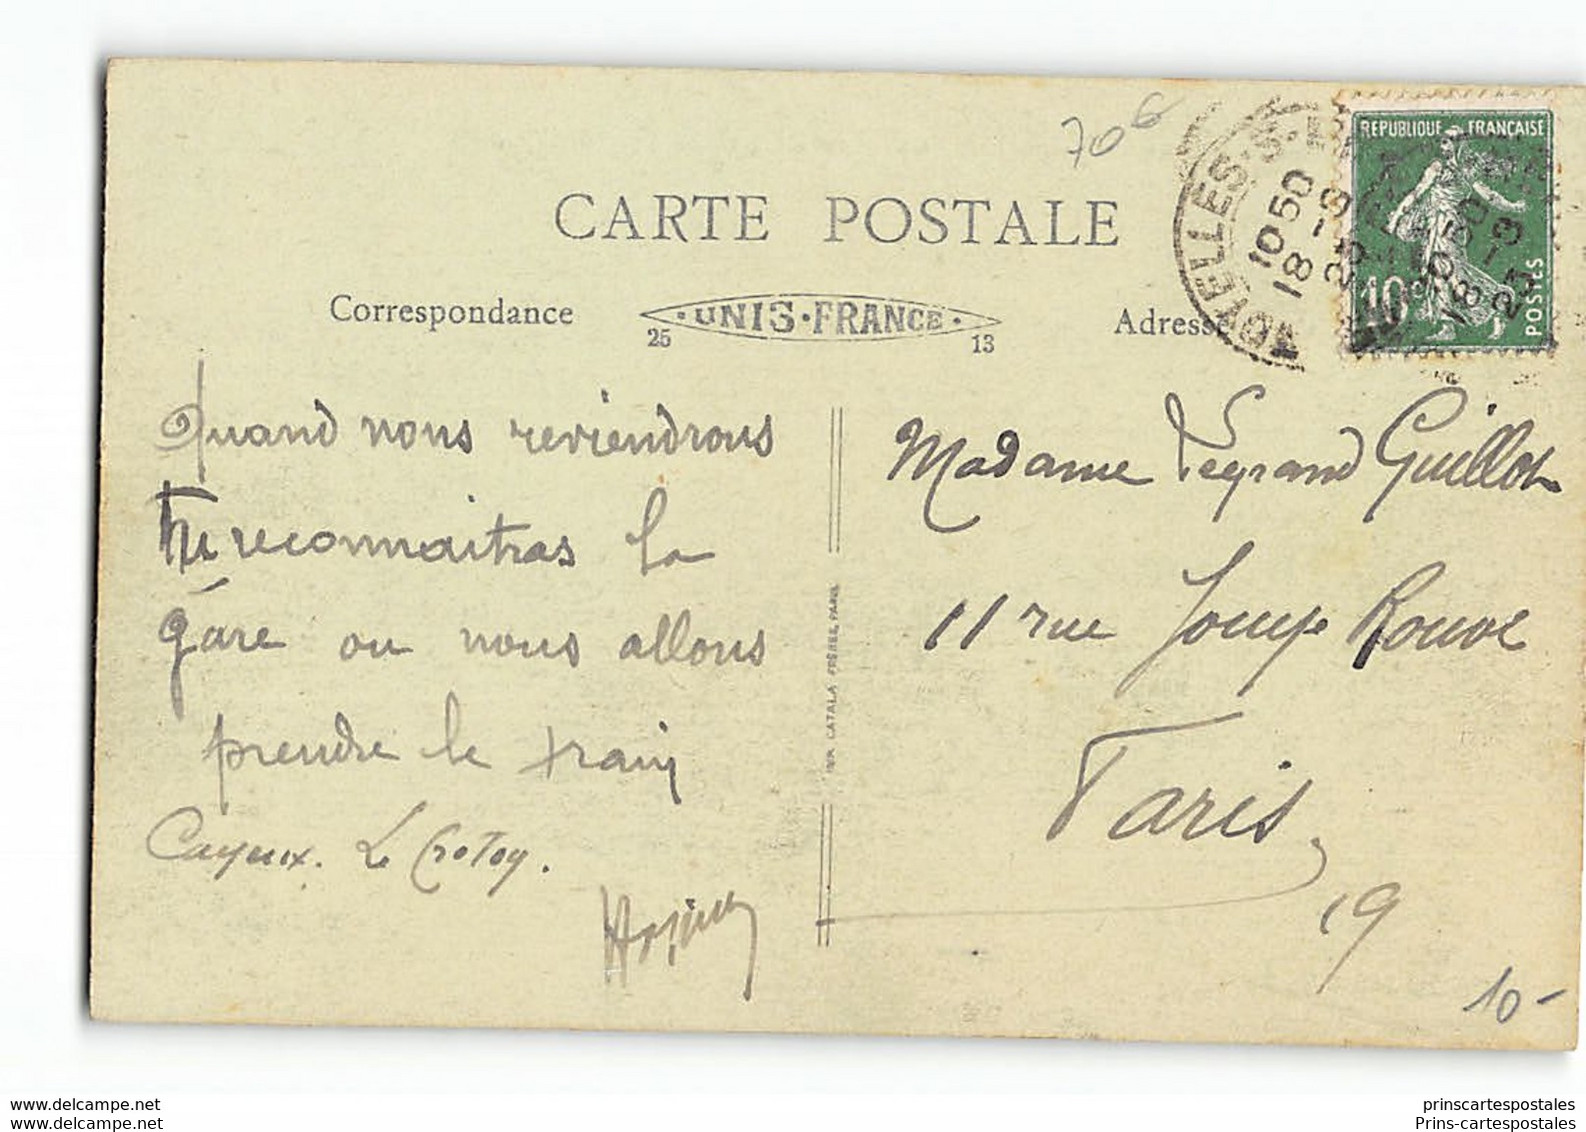 70 6
CARTE POSTALE
Correspondance
UNIS·FRANCE·
25 13
Adresse
NOYELLES·S·
10 50
18 -3
25
REPUBLIQUE FRANÇAISE
10
POSTES
10 50
18 -3
25
Quand nous reviendrons
Tu reconnaitras la
gare ou nous allons
prendre le train
Cayeux. Le Crotoy.
IMP. CATALA FRÈRES, PARIS
Madame Legrand Guillot
11 rue Rouve
Paris
19
10-
delcampe.net
prinscartespostales
Prins-cartespostales